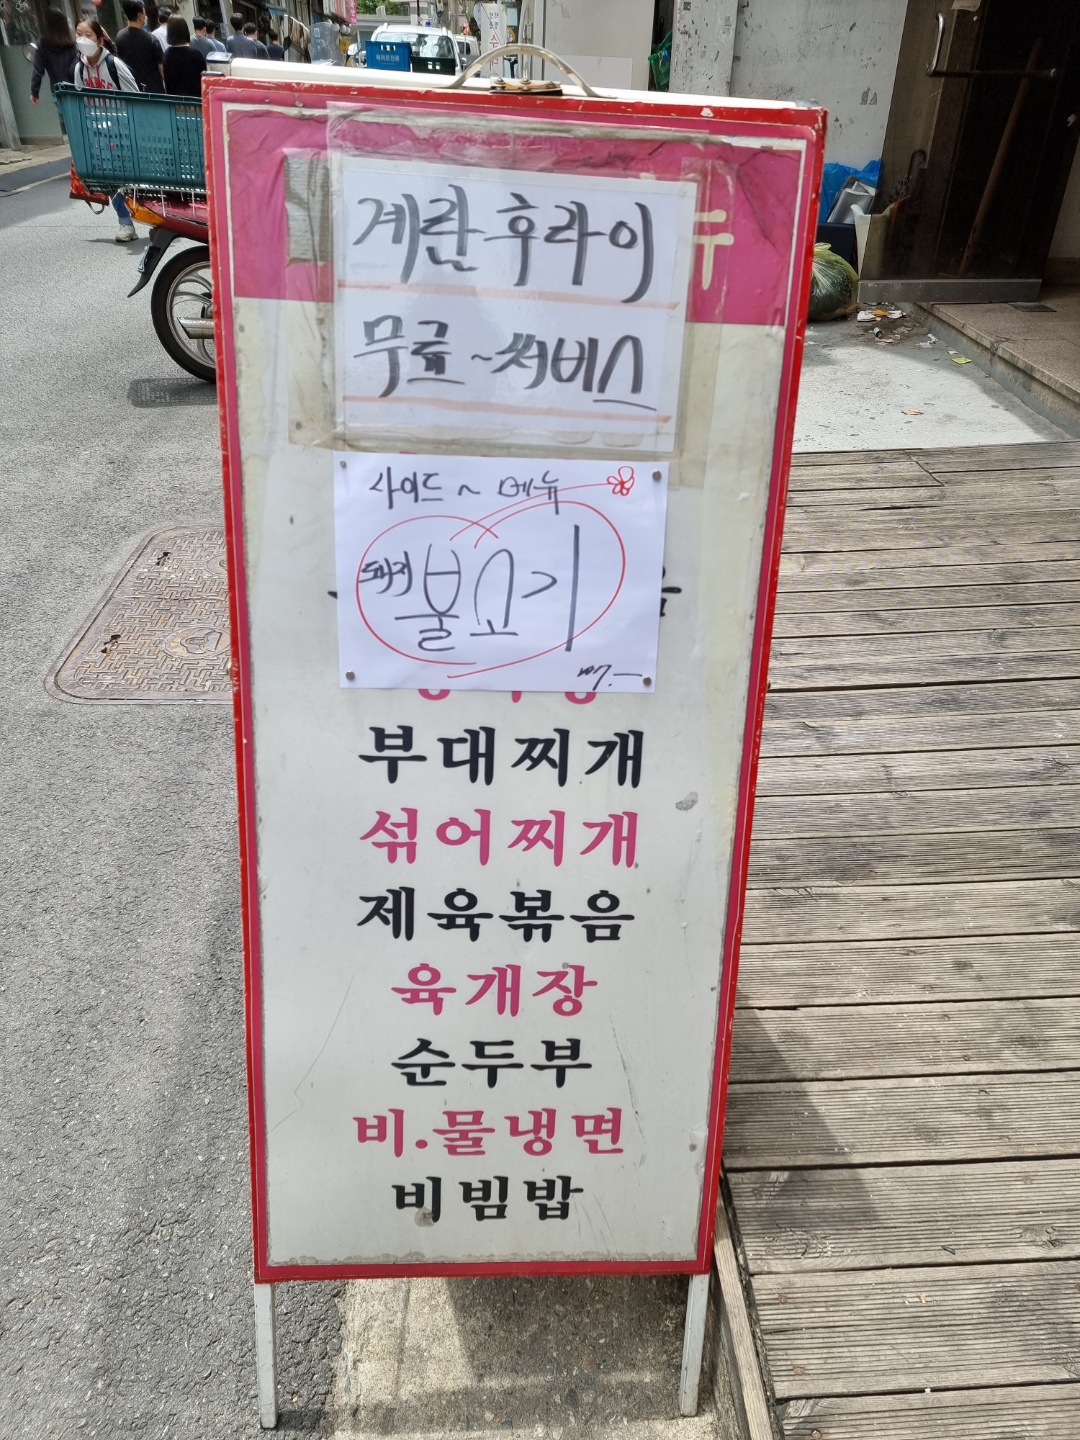 계란후라이
무료~써비스
사이드~메뉴
돼지 불고기
부대찌개
섞어찌개
제육볶음
육개장
순두부
비.물냉면
비빔밥